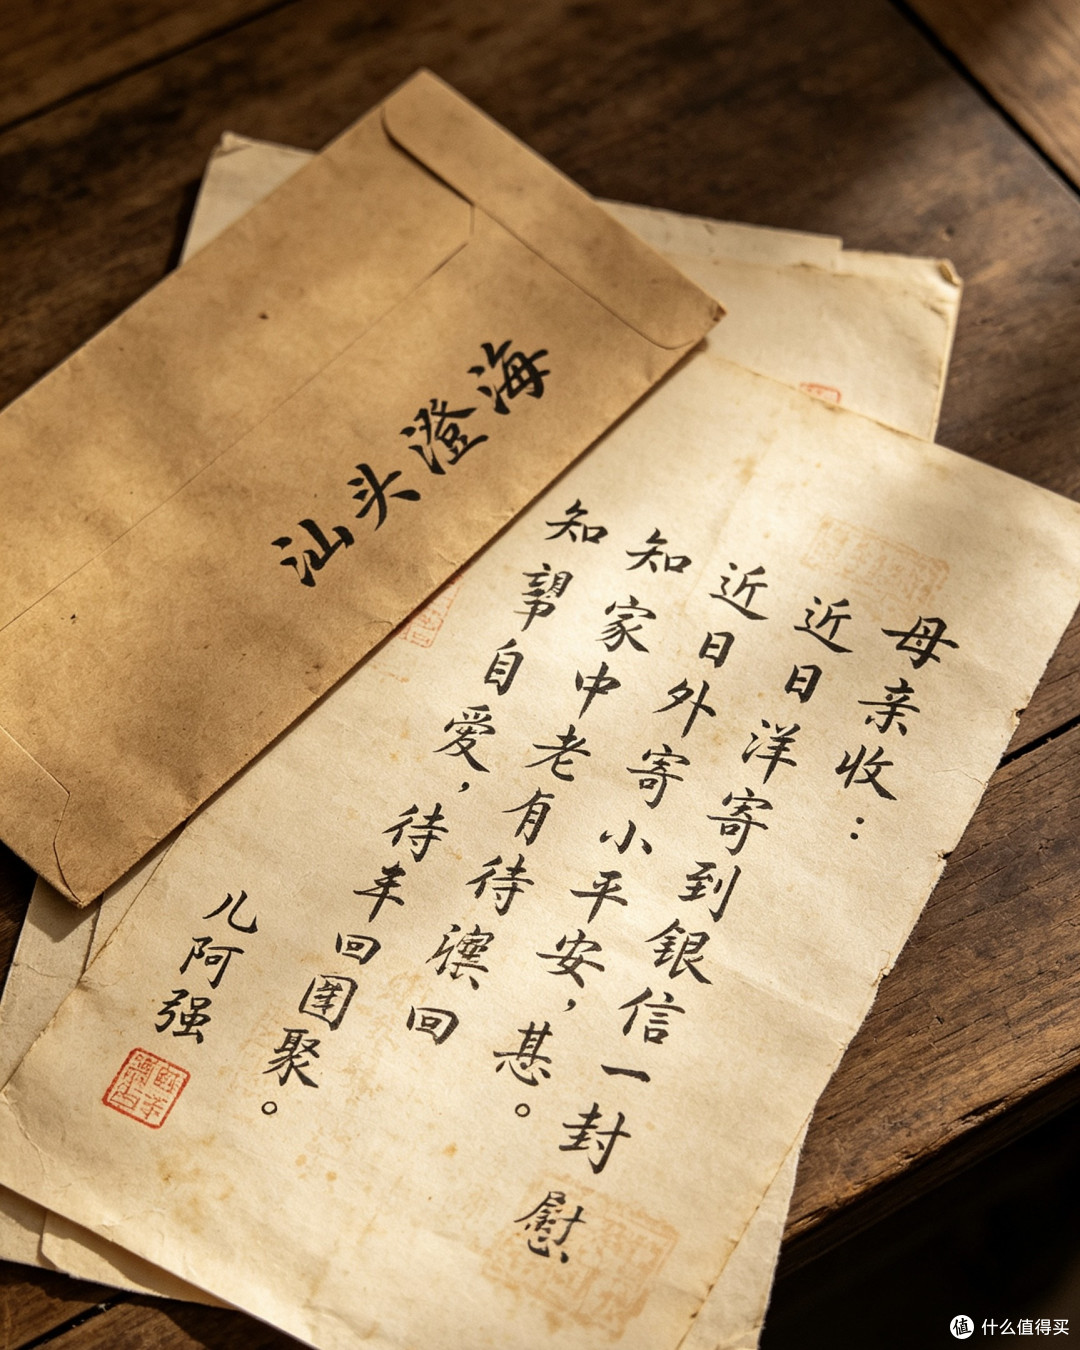 汕头澄海
母亲收：
近日洋寄到银信一封慰
近日外寄小平安，。
知家中老有待回
知自愛，待回聚。
儿阿强
值 什么值得买